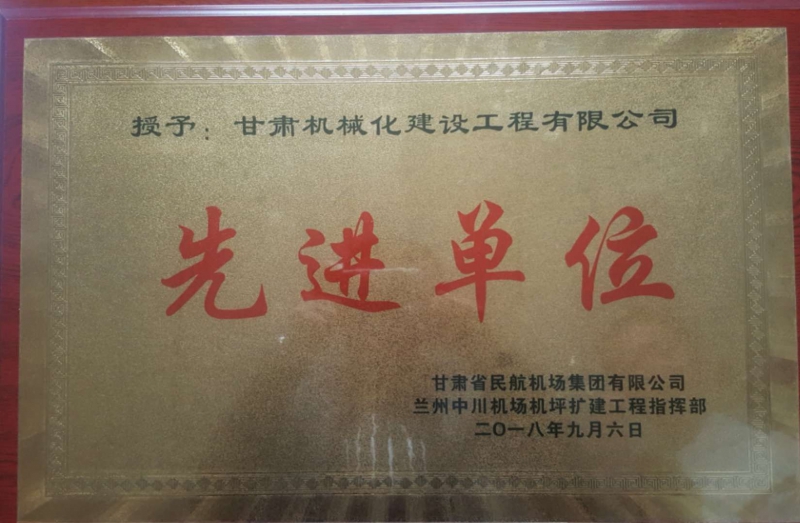 授予：甘肃机械化建设工程有限公司
先进单位
甘肃省民航机场集团有限公司
兰州中川机场机坪扩建工程指挥部
二〇一八年九月六日